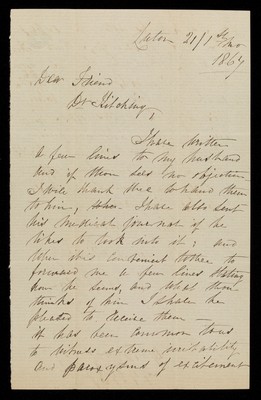 Luton 21/1st mo
1867
Dear Friend
Dr Kitching,
I have written
a few lines to my husband
and if thou sees no objection
I will thank thee to hand them
to him, I have also sent
his medical journal if he
likes to look into it; and
when it is convenient to thee to
forward me a few lines stating
how he seems, and what thou
thinks of him I shall be
pleased to receive them —
it has been common to us
to witness extreme irritability
and paroxysms of excitement